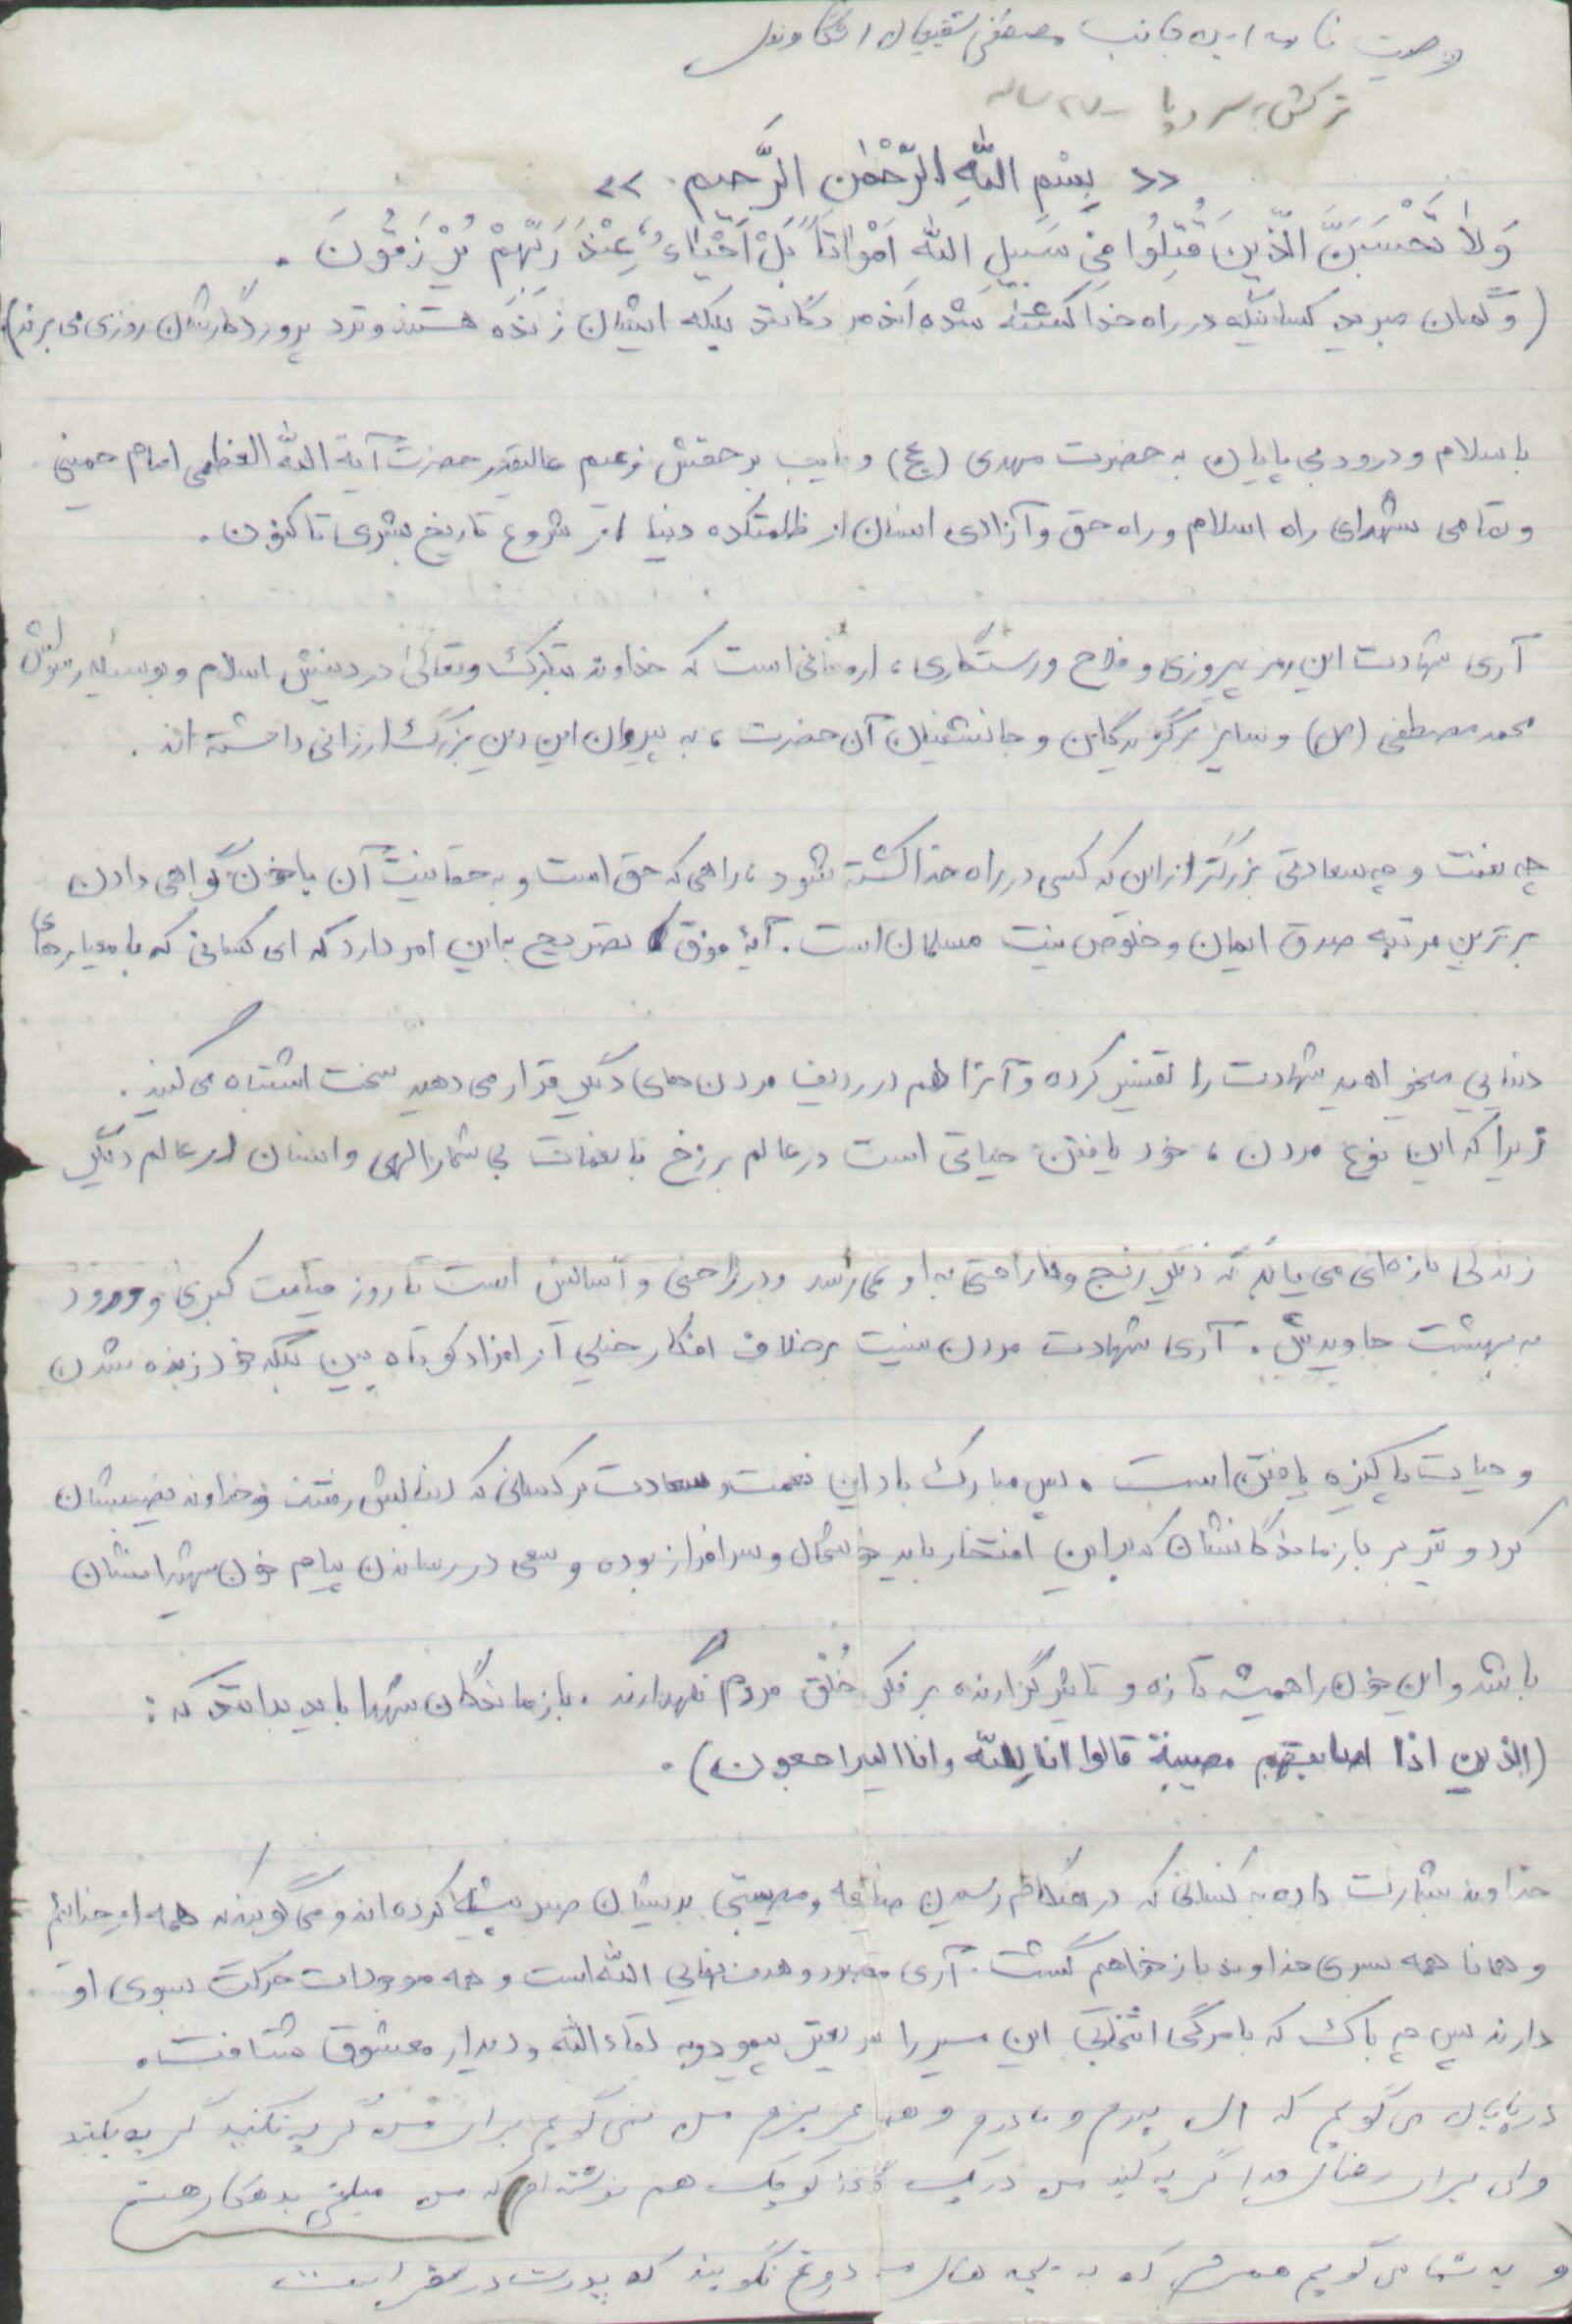 وصیت نامه اینجانب مصطفی
ترکش سر و پا - ساله
« بِسْمِ اللّهِ الرَّحْمٰنِ الرَّحیمِ. »
وَلاٰ تَحْسَبَنَّ الَّذینَ قُتِلُوا فی سَبیلِ اللّهِ اَمْوٰاتاً بَلْ اَحْیٰاءٌ عِنْدَ رَبِّهِمْ یُرْزَقُونَ .
(وگمان مبرید کسانیکه در راه خدا کشته شده اند مردگانند بلکه ایشان زنده هستند ونزد پروردگارشان روزی می برند)
با سلام و درود بی پایان به حضرت مهدی (عج) و نایب بر حقش زعیم عالیقدر حضرت آیة اللّه العظمی امام خمینی
و تمامی شهدای راه اسلام و راه حق و آزادی انسان از ظلمتکده دنیا از شروع تاریخ بشری تا کنون .
آری شهادت این رمز پیروزی و فلاح و رستگاری، ارمغانی است که خداوند تبارک وتعالی در دینش اسلام و بوسیله رسولش
محمد مصطفی (ص) و سایر برگزیدگان و جانشینان آن حضرت ، به پیروان این دین بزرگ ارزانی داشته اند .
چه نعمت و چه سعادتی بزرگتر از این که کسی در راه خدا کشته شود ، راهی که حق است و به حقانیت آن با خون گواهی دادن
برترین مرتبه صدق ایمان و خلوص نیت مسلمان است . آیهٔ فوق تصریح به این امر دارد که ای کسانی که با معیارهای
دنیایی میخواهید شهادت را تفسیر کرده و آنرا هم در ردیف مردن های دیگر قرار می دهید سخت اشتباه می کنید .
زیرا که این نوع مردن ، خود یافتن حیاتی است در عالم برزخ با نعمات بی شمار الهی و انسان در عالم دیگر
زندگی تازه ای می یابد که دیگر رنج و ناراحتی به او نمی رسد و در راحتی و آسایش است تا روز قیامت کبری و ورود
به بهشت جاویدش . آری شهادت مردن نیست برخلاف افکار خیلی از افراد کوتاه بین بلکه خود زنده شدن
و حیات پاکیزه یافتن است . پس مبارک باد این نعمت و سعادت بر کسانی که دنبالش رفتند و خداوند نصیبشان
کرد و نیز بر بازماندگانشان که براین افتخار باید خوشحال و سرافراز بوده و سعی در رساندن پیام خون شهیدانشان
باشند و این خون را همیشه تازه و تاثیر گزارنده بر فکر خُلْق مردم نگهدارند . بازماندگان شهدا باید بدانند که :
(الذین اذا اصابتهم مصیبة قالوا انا للّه وانا الیه راجعون) .
خداوند بشارت داده به کسانی که در هنگام رسیدن ضایعه و مصیبتی بدیشان صبر پیشه کرده اند و می گویند که همه از خدائیم
و همانا همه بسوی خداوند باز خواهیم گشت . آری مقصود و هدف نهایی اللّه است و همه موجودات حرکت بسوی او
دارند پس چه باک که با مرگی انتخابی این مسیر را سریعتر پیمود و به لقاءاللّه و دیدار معشوق شتافت .
در پایان می گویم که ای پدرم و مادرم و همسر عزیزم من نمی گویم برای من گریه نکنید گریه بکنید
ولی برای رضای خدا گریه کنید من در یک کاغذ کوچک هم نوشته ام که من مبلغی بدهکار هستم
و به شما می گویم همسرم که به بچه های من دروغ نگویید که پدرت در سفر است